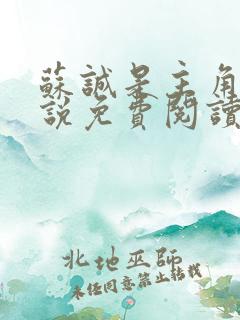 蘇誠是主角
說免費閱讀
北地巫師
未經同意禁止轉載